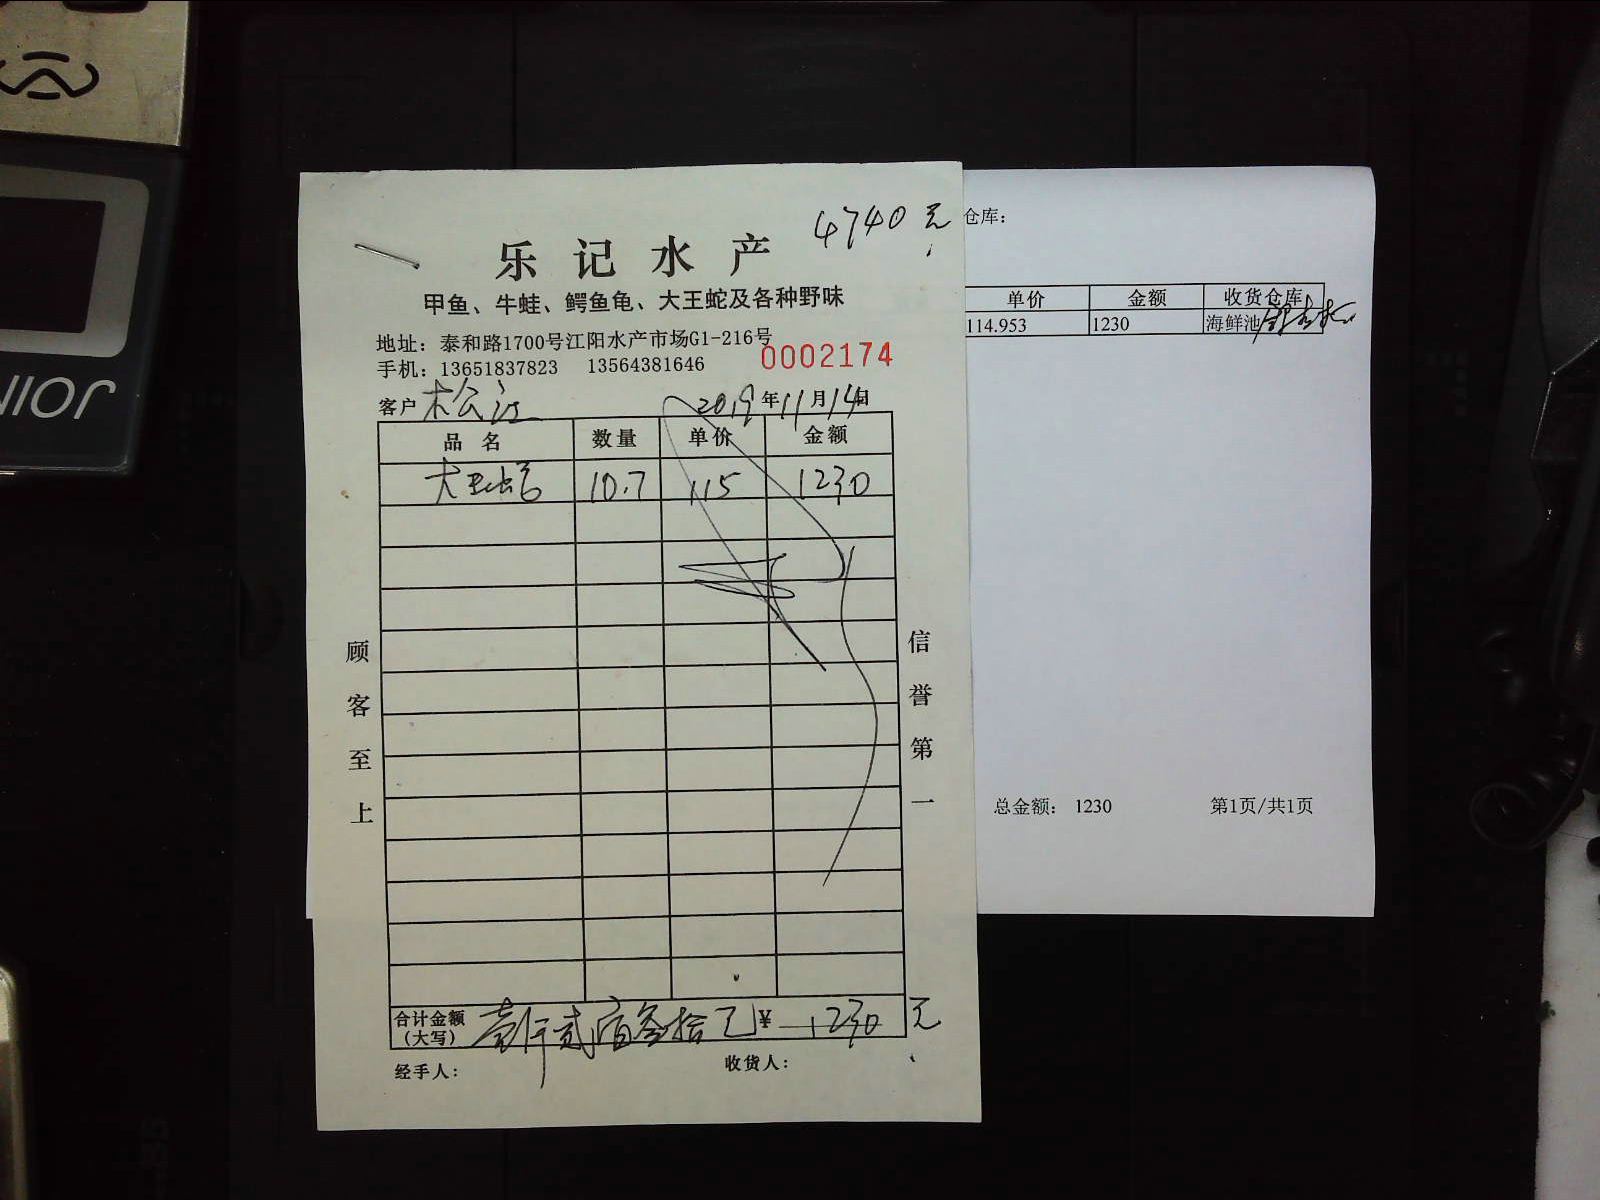 4740元
乐记水产
甲鱼、牛蛙、鳄鱼龟、大王蛇及各种野味
地址：泰和路1700号江阳水产市场G1-216号
手机：13651837823 13564381646
0002174
客户 松江 2019年11月14日
品名 数量 单价 金额
大王蛇 10.7 115 1230
顾客至上
信誉第一
合计金额（大写） 壹仟贰佰叁拾 ¥ 1230元
经手人： 收货人：
仓库：
单价 金额 收货仓库
114.953 1230 海鲜池
总金额： 1230 第1页/共1页
JUNIOR